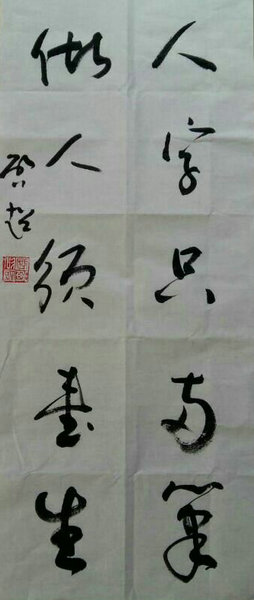 人字只两笔
做人须尽生
启超